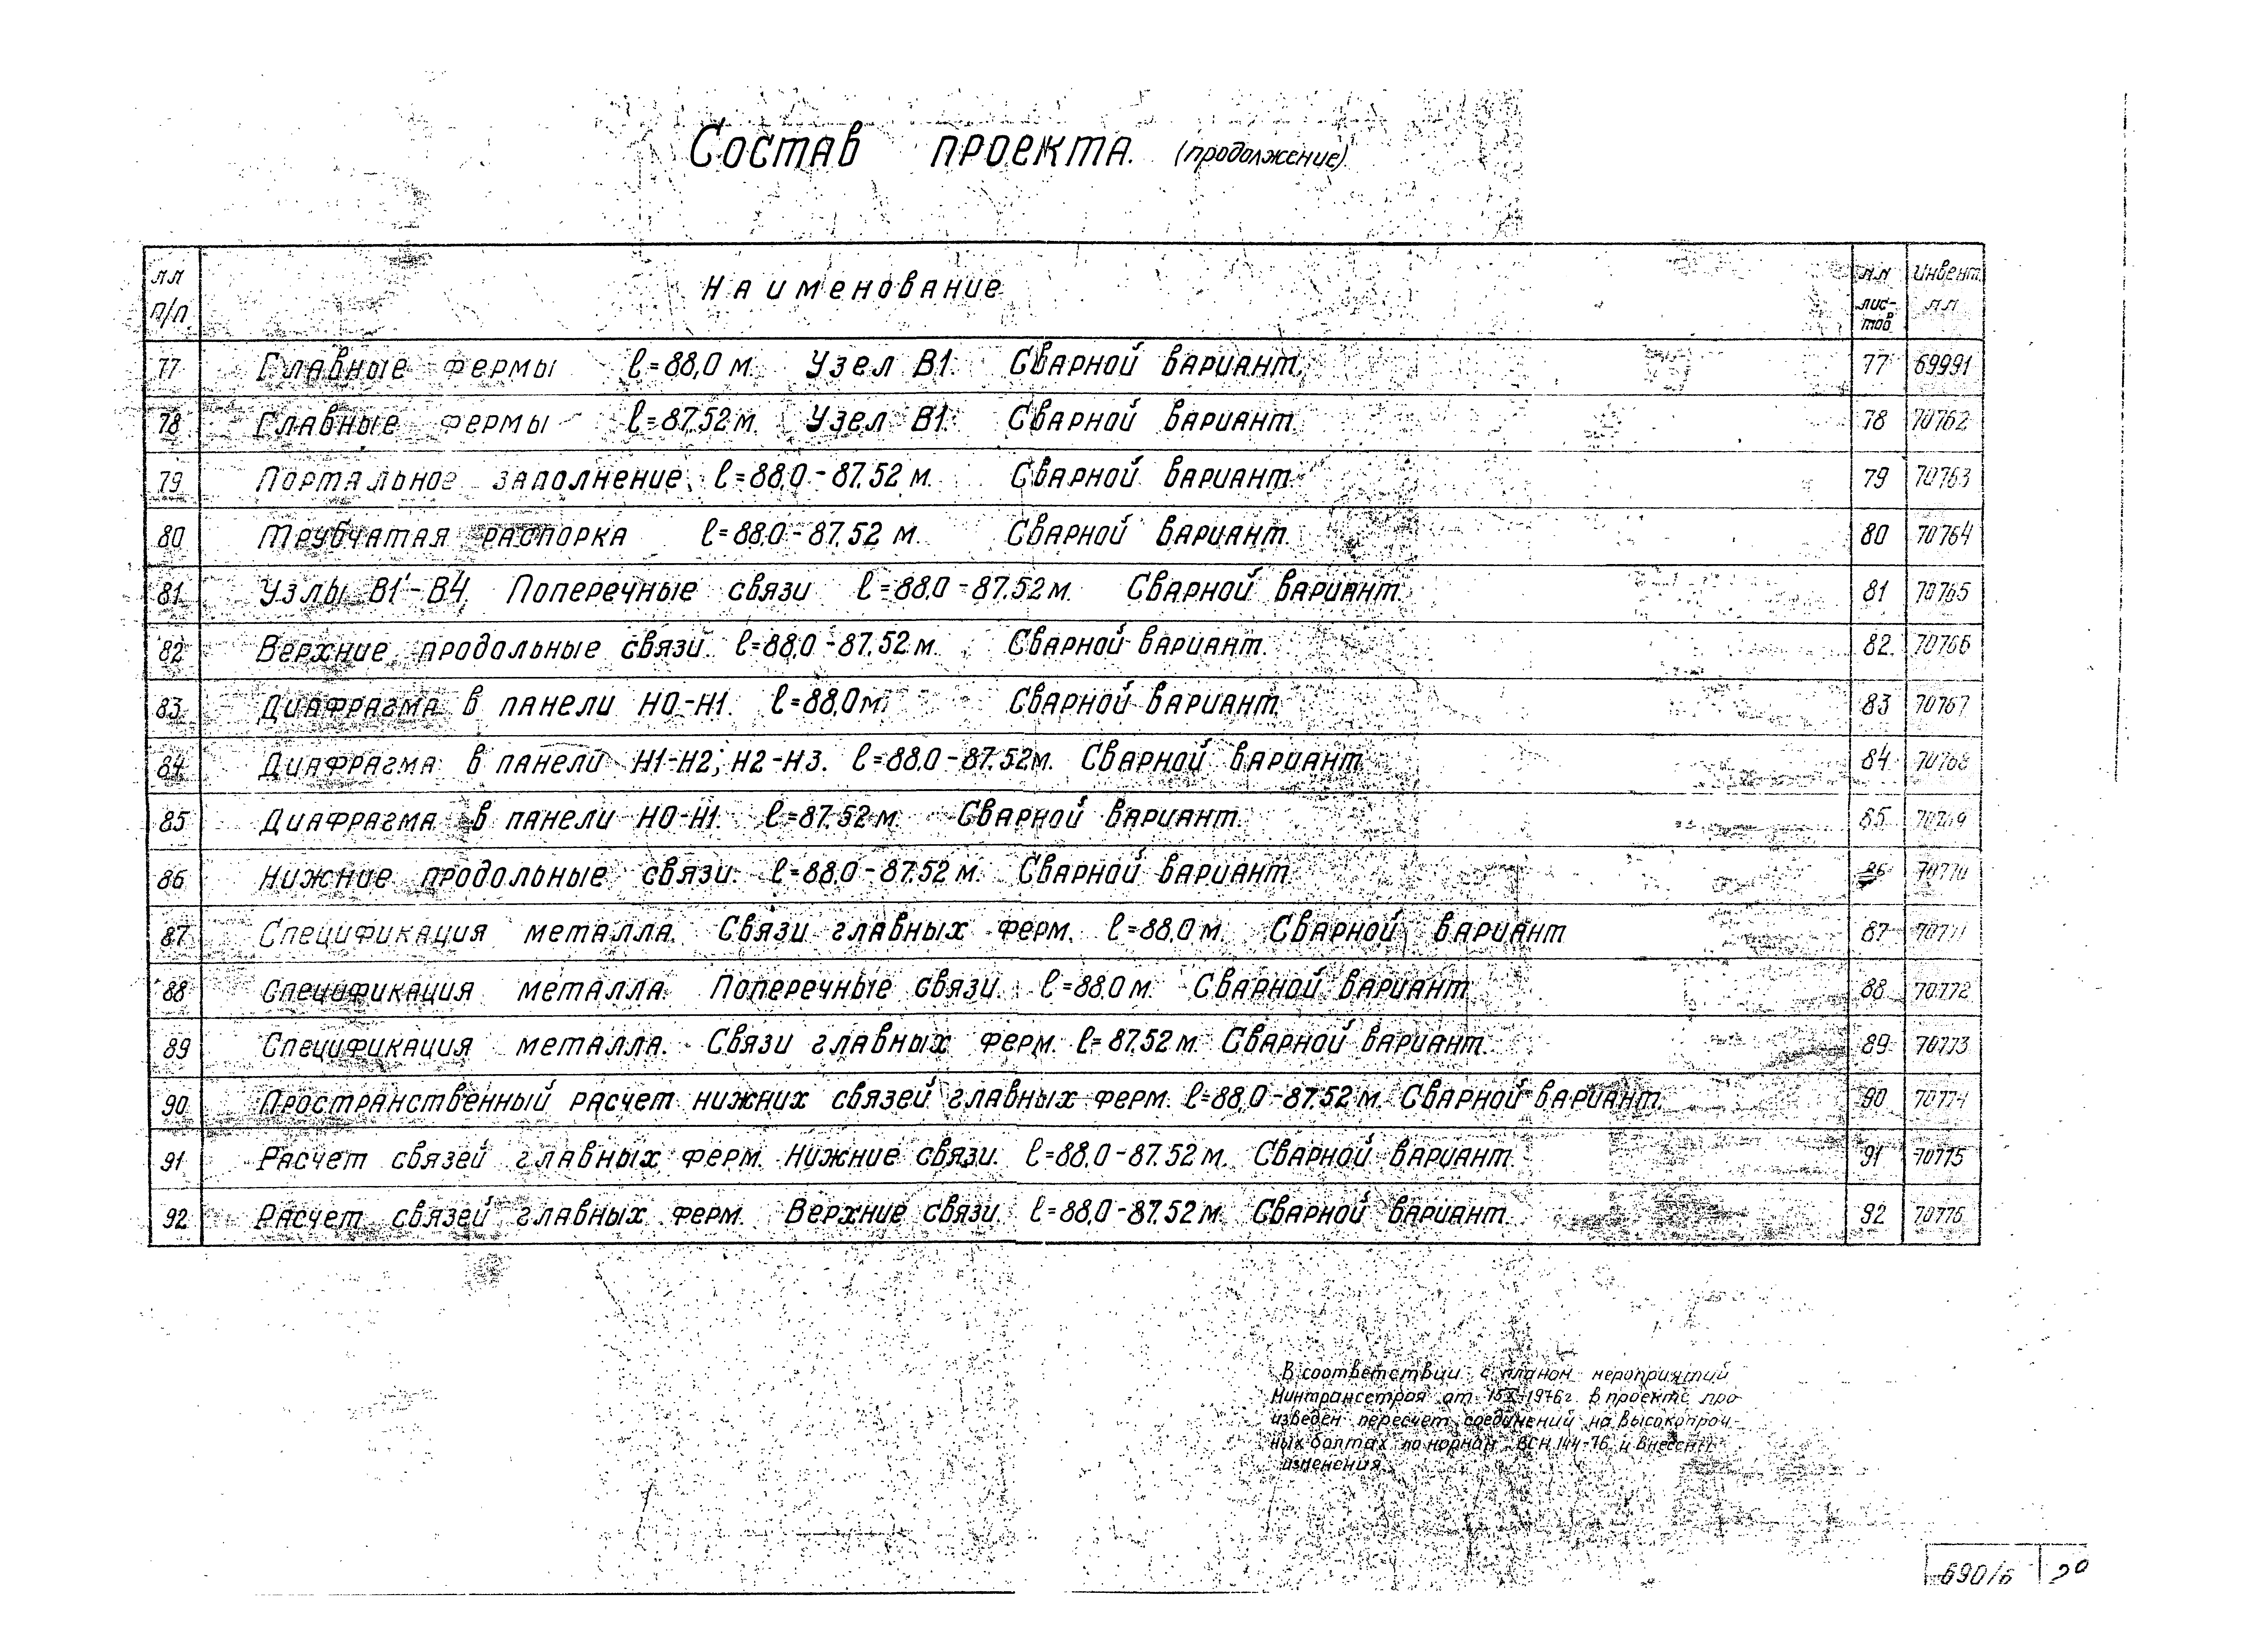 Состав проекта. (продолжение)
№№ п/п Наименование №№ листов Инвент. №№
77 Главные фермы ℓ=88,0 м. Узел В1. Сварной вариант. 77 69991
78 Главные фермы ℓ=87.52 м. Узел В1. Сварной вариант. 78 70762
79 Портальное заполнение. ℓ=88,0-87.52 м. Сварной вариант. 79 70763
80 Трубчатая распорка ℓ=88,0-87.52 м. Сварной вариант. 80 70764
81 Узлы В1'-В4. Поперечные связи ℓ=88,0-87.52 м. Сварной вариант. 81 70765
82 Верхние продольные связи. ℓ=88,0-87.52 м. Сварной вариант. 82. 70766
83 Диафрагма в панели Н0-Н1. ℓ=88,0 м. Сварной вариант. 83 70767
84 Диафрагма в панели Н1-Н2; Н2-Н3. ℓ=88,0-87.52м. Сварной вариант. 84 70768
85 Диафрагма в панели Н0-Н1. ℓ=87.52 м. Сварной вариант. 85 70769
86 Нижние продольные связи. ℓ=88,0-87.52 м. Сварной вариант. 86 70770
87 Спецификация металла. Связи главных ферм. ℓ=88,0 м. Сварной вариант 87 70771
88 Спецификация металла. Поперечные связи. ℓ=88,0 м. Сварной вариант. 88 70772
89 Спецификация металла. Связи главных ферм. ℓ=87.52 м. Сварной вариант. 89 70773
90 Пространственный расчет нижних связей главных ферм. ℓ=88,0-87.52 м. Сварной вариант. 90 70774
91 Расчет связей главных ферм. Нижние связи. ℓ=88,0-87.52 м. Сварной вариант. 91 70775
92 Расчет связей главных ферм. Верхние связи. ℓ=88,0-87.52 м. Сварной вариант. 92 70776
В соответствии с планом мероприятий
Минтрансстроя от 1976г. в проекте про-
изведен пересчет соединений на высокопроч-
ных болтах по нормам ВСН 144-76 и внесены
изменения.
690/6 20